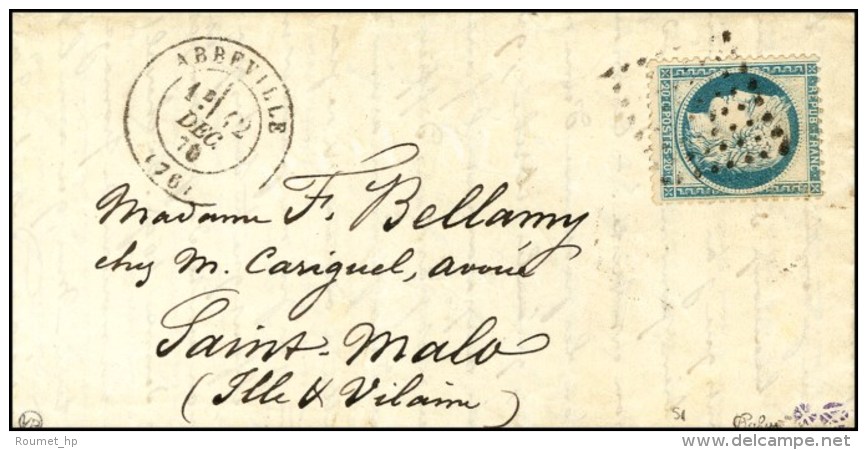 ABBEVILLE
12
DEC.
70
(76)
REPUB. FRANC.
20 C. POSTES 20 C.
Madame F. Bellamy
chez M. Cariguel, avoué
Saint-Malo
(Ille & Vilaine)
51
Roumet_hp
www.delcampe.net